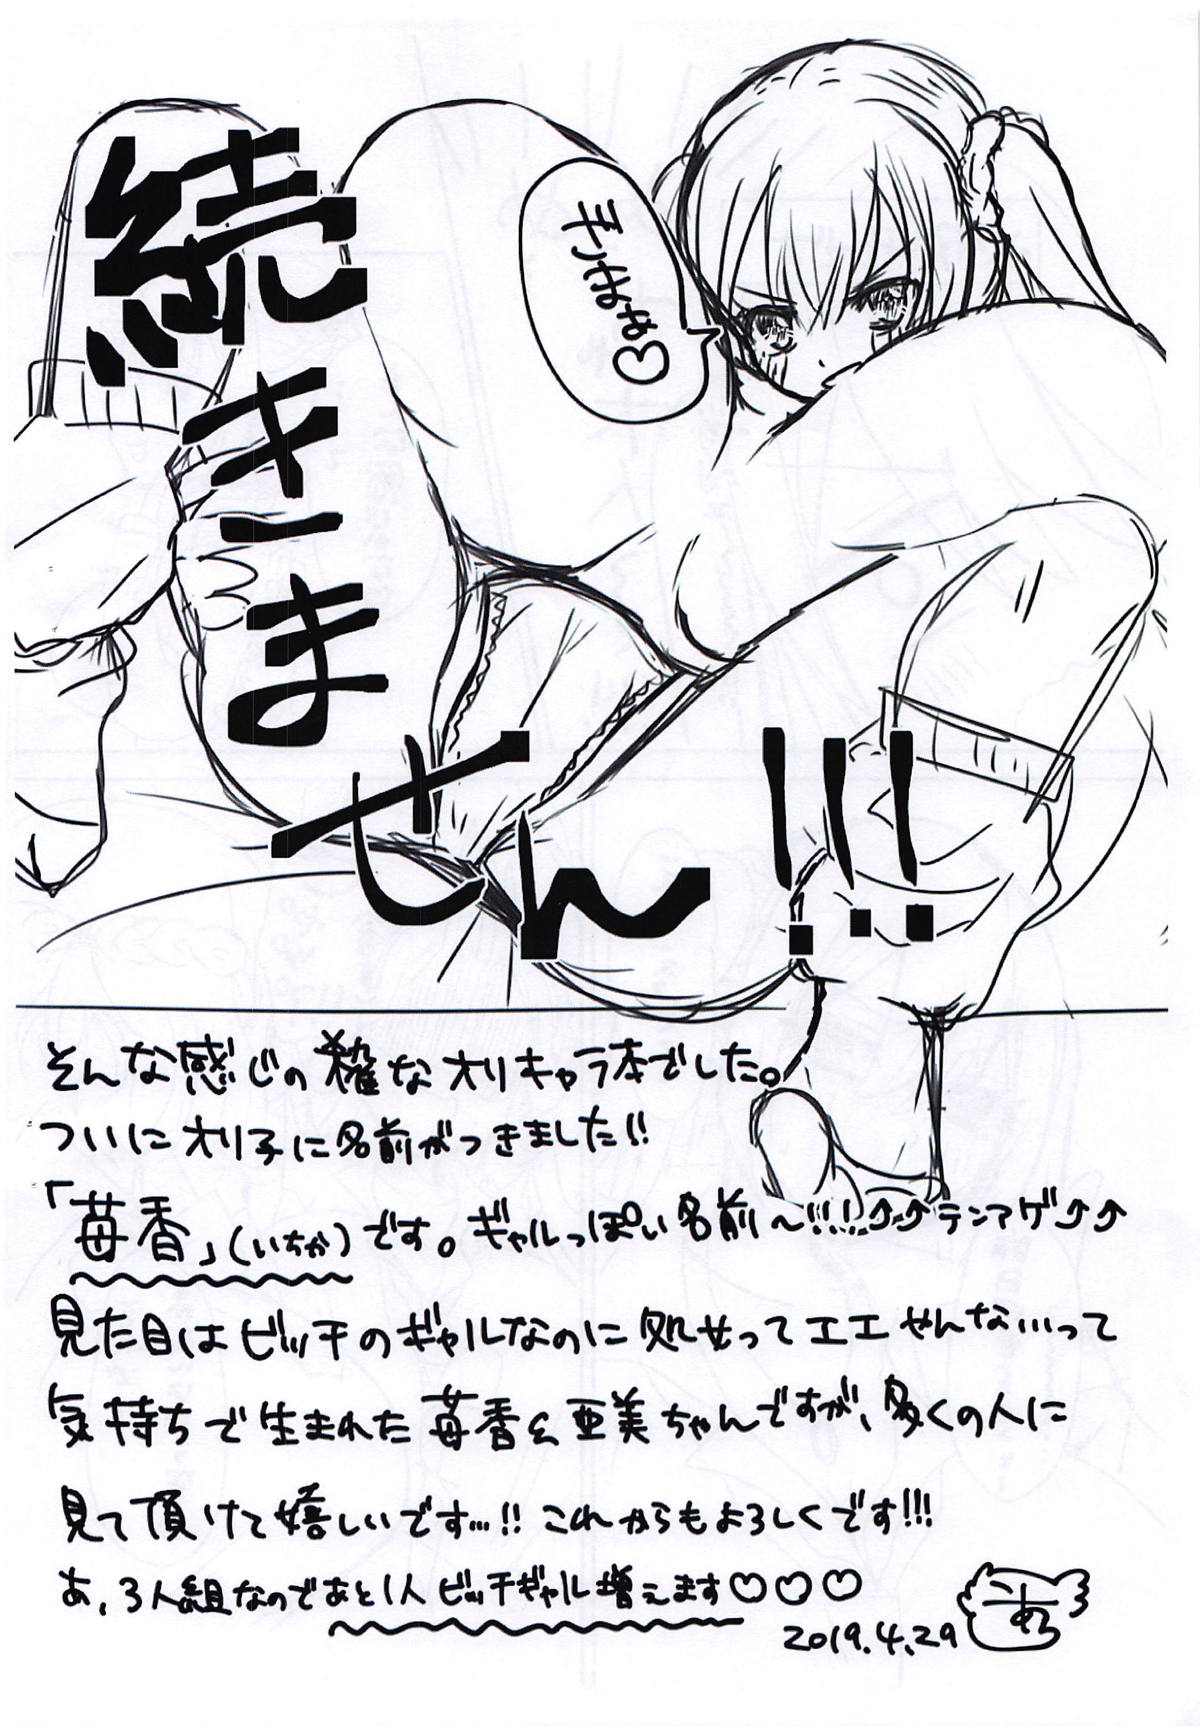 続きません!!!
ぎゅまぁ♡
そんな感じの雑なオリキャラ本でした。
ついにオリ子に名前がつきました!!
「苺香」(いちか)です。ギャルっぽい名前〜!!!⤴⤴テンアゲ⤴⤴
見た目はビッチのギャルなのに処女ってエエやんない!!って
気持ちで生まれた苺香&亜美ちゃんですが、多くの人に
見て頂けて嬉しいです…!! これからもよろしくです!!!
あ、3人組なのであと1人ビッチギャル増えます♡♡♡
2019.4.29